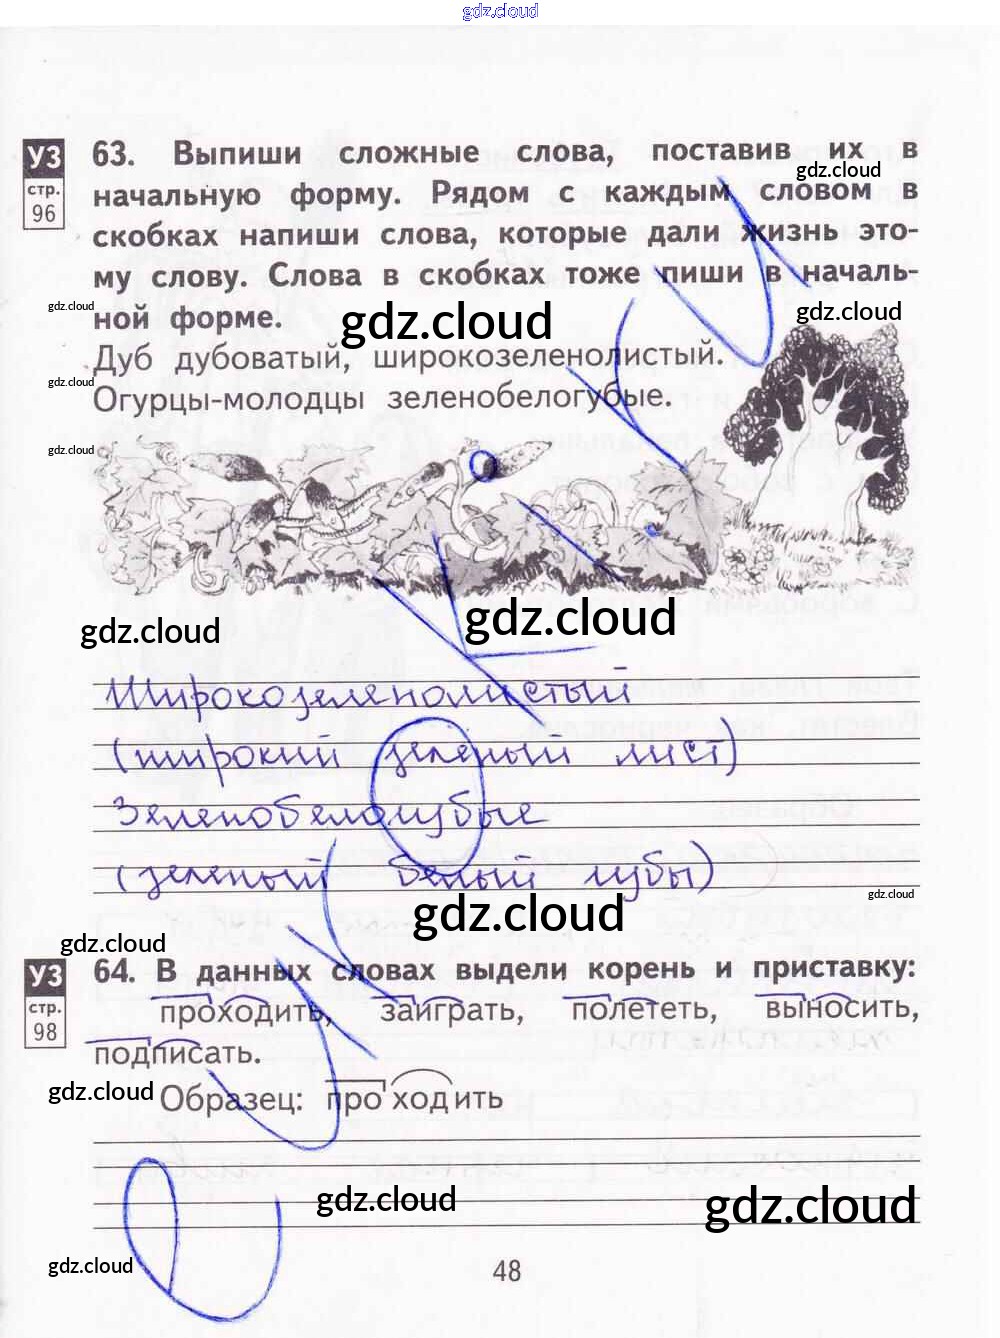 gdz.cloud
УЗ
стр.
96
63. Выпиши сложные слова, поставив их в
gdz.cloud
начальную форму. Рядом с каждым словом в
скобках напиши слова, которые дали жизнь это-
му слову. Слова в скобках тоже пиши в началь-
gdz.cloud
ной форме.
gdz.cloud
gdz.cloud
Дуб дубоватый, широкозеленолистый.
gdz.cloud
gdz.cloud
Огурцы-молодцы зеленобелогубые.
gdz.cloud
gdz.cloud
gdz.cloud
Широкозеленолистый
(широкий зеленый лист)
Зеленобелогубые
(зеленый белый губы)
gdz.cloud
gdz.cloud
gdz.cloud
УЗ
стр.
98
64. В данных словах выдели корень и приставку:
проходить, заиграть, полететь, выносить,
подписать.
gdz.cloud
Образец: про ход ить
gdz.cloud
gdz.cloud
gdz.cloud
48